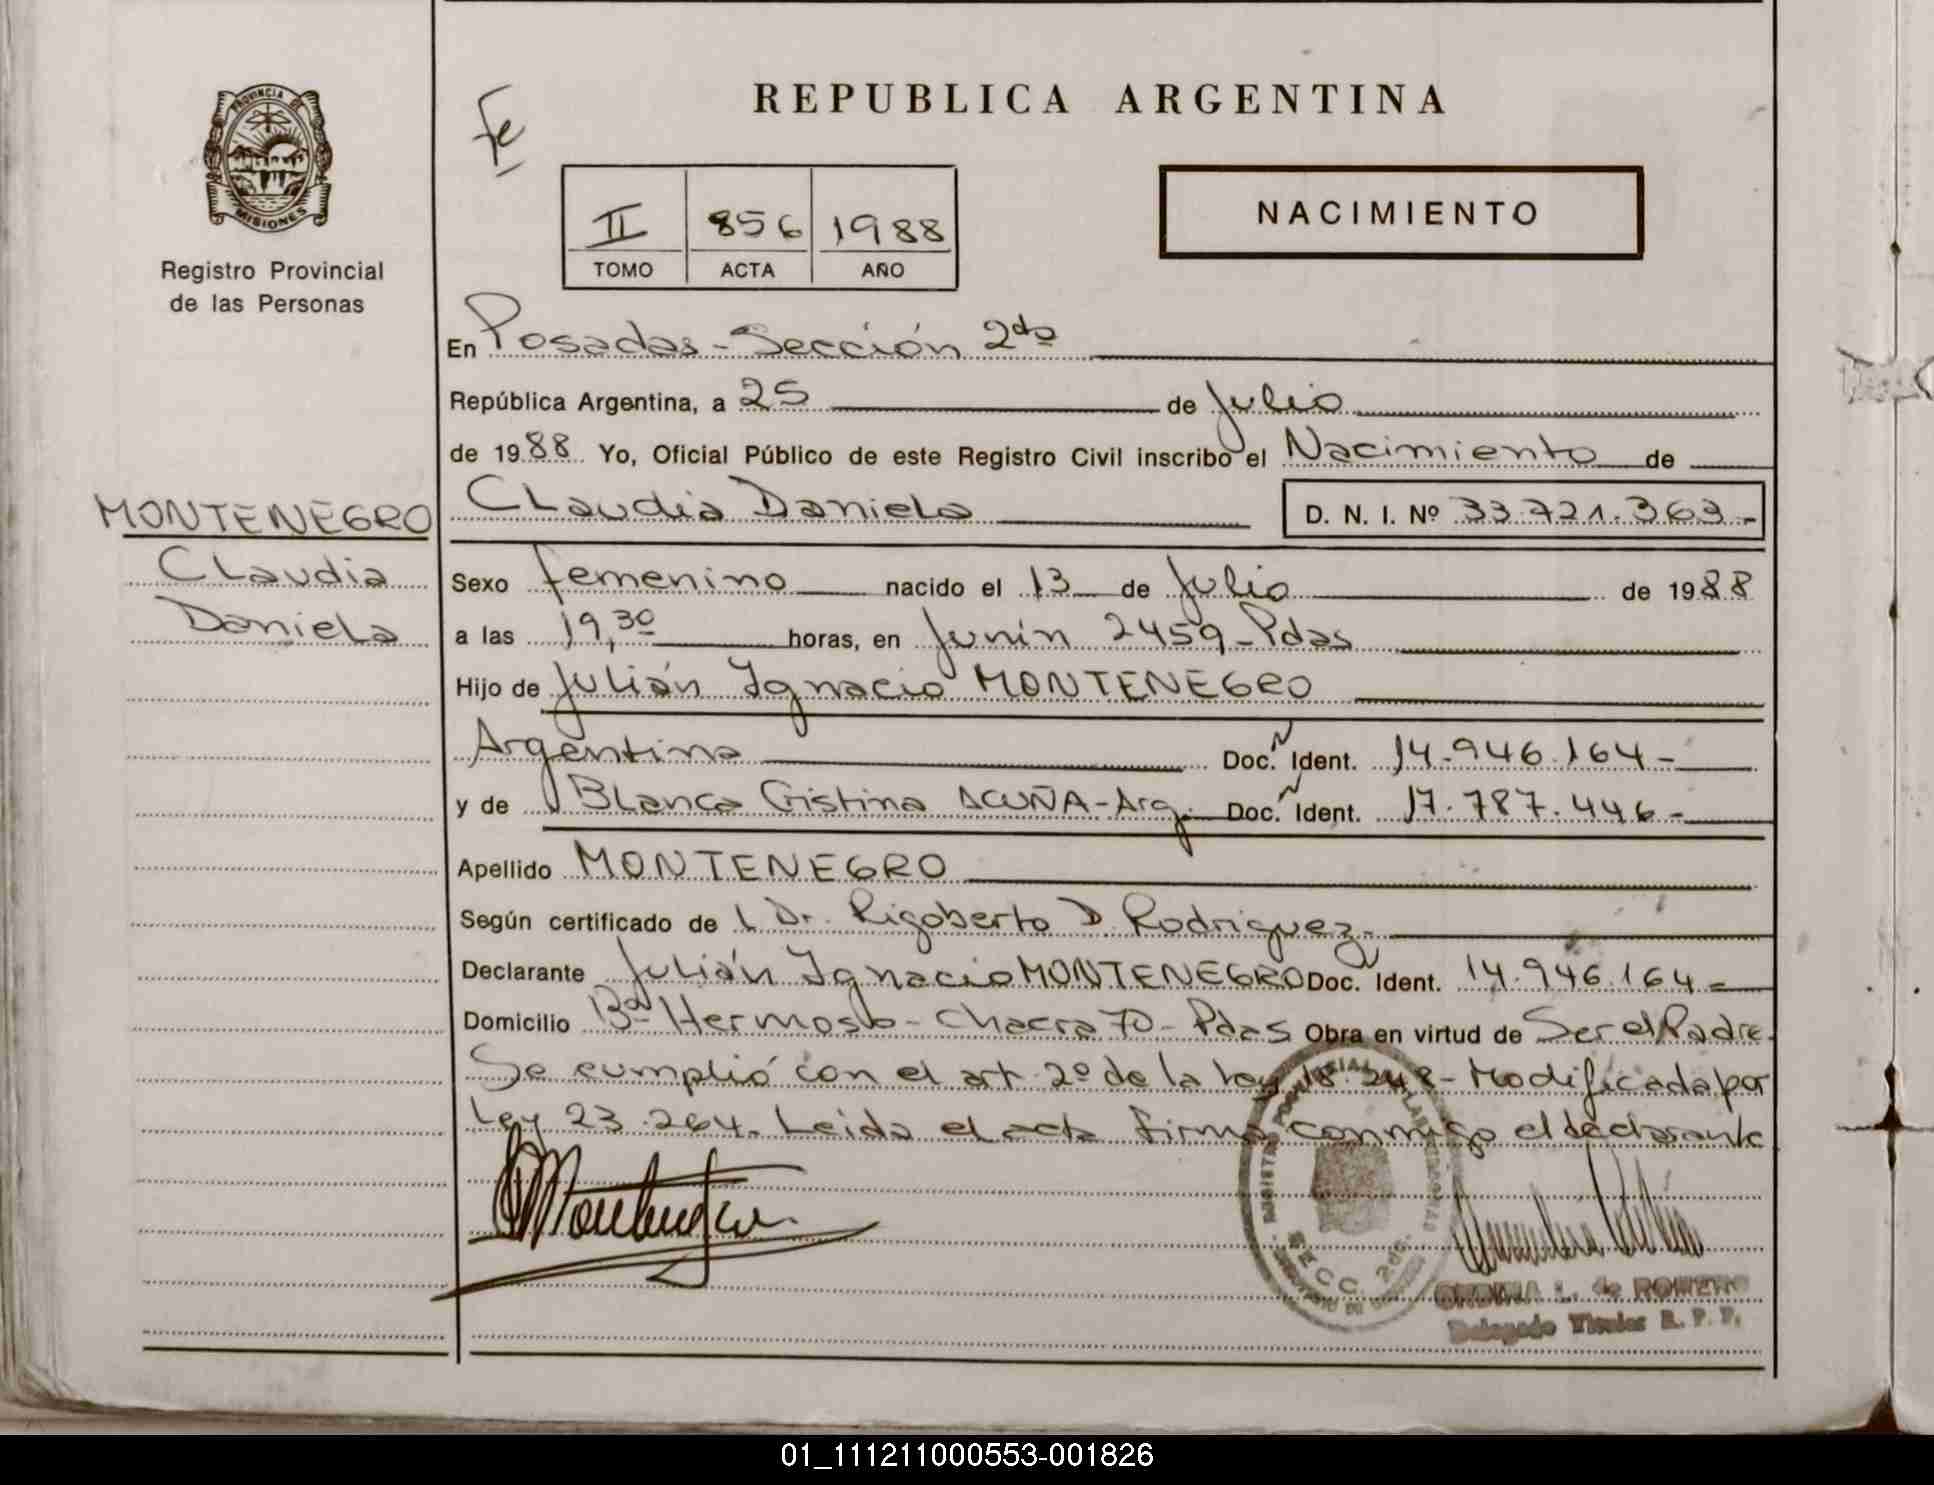 PROVINCIA DE
MISIONES
Registro Provincial
de las Personas
MONTENEGRO
Claudia
Daniela
Fe
REPUBLICA ARGENTINA
II 856 1988
TOMO ACTA AÑO
NACIMIENTO
En Posadas - Sección 2da
República Argentina, a 25 de Julio
de 1988 Yo, Oficial Público de este Registro Civil inscribo el Nacimiento de
Claudia Daniela D. N. I. Nº 33.721.363-
Sexo femenino nacido el 13 de Julio de 1988
a las 19,30 horas, en Junín 2459-Pdas
Hijo de Julián Ignacio MONTENEGRO
Argentina Doc. Ident. 14.946.164-
y de Blanca Cristina ACUÑA-Arg. Doc. Ident. 17.787.446-
Apellido MONTENEGRO
Según certificado de l Dr. Rigoberto D. Rodriguez.
Declarante Julián Ignacio MONTENEGRO Doc. Ident. 14.946.164-
Domicilio Bº Hermoso - Chacra 70 - Pdas Obra en virtud de Ser el Padre.
Se cumplió con el art. 2º de la Ley 18.248 - Modificada por
Ley 23.264. Leida el acta firma conmigo el declarante
SECC. 2da.
ORDINA L. de ROMERO
Delegado Titular R. P. P.
01_111211000553-001826